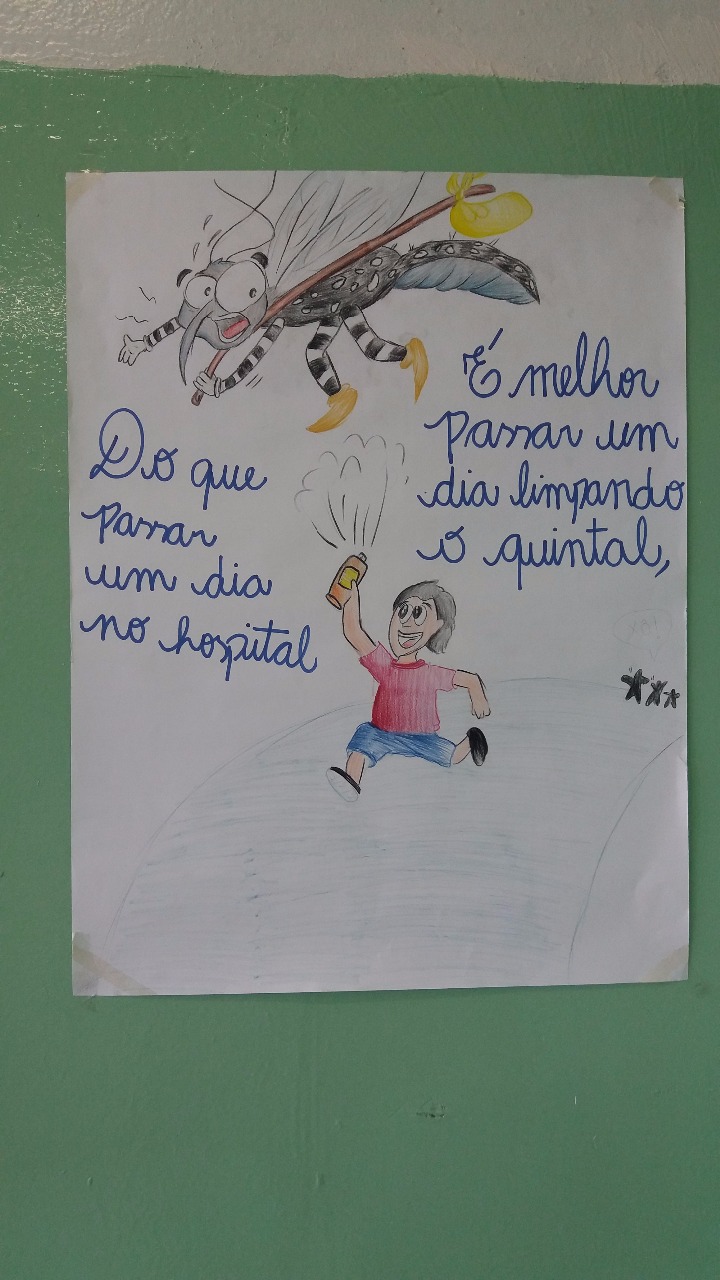 É melhor
passar um
dia limpando
o quintal,
Do que
passar
um dia
no hospital